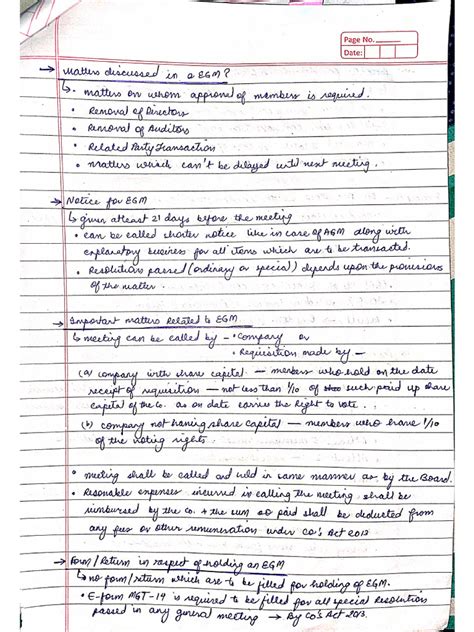 Page No.
Date:
→ Matters discussed in a EGM?
↳ • matters on whom approval of members is required.
• Removal of Directors
• Removal of Auditors
• Related Party Transaction
• Matters which can't be delayed until next meeting.
→ Notice for EGM
↳ given atleast 21 days before the meeting
• can be called shorter notice like in case of AGM along with
explanatory business for all items which are to be transacted.
• Resolutions passed (ordinary or special) depends upon the provisions
of the matter.
→ Important matters Related to EGM
↳ meeting can be called by — • Company or
• Requisition made by —
(a) company with share capital — members who hold on the date
receipt of requisition — not less than 1/10 of such paid up share
capital of the Co. as on date carries the Right to vote.
(b) company not having share capital — members who have 1/10
of the voting rights.
• meeting shall be called and held in same manner as by the Board.
• Resonable expenses incurred in calling the meeting shall be
reimbursed by the Co. & the sum so paid shall be deducted from
any fees or other remuneration under Co's Act 2013
→ Form/Return in respect of holding an EGM
↳ no form/return which are to be filled for holding of EGM.
• E-form MGT-14 is required to be filled for all special Resolution
passed in any general meeting → By Co's Act 2013.